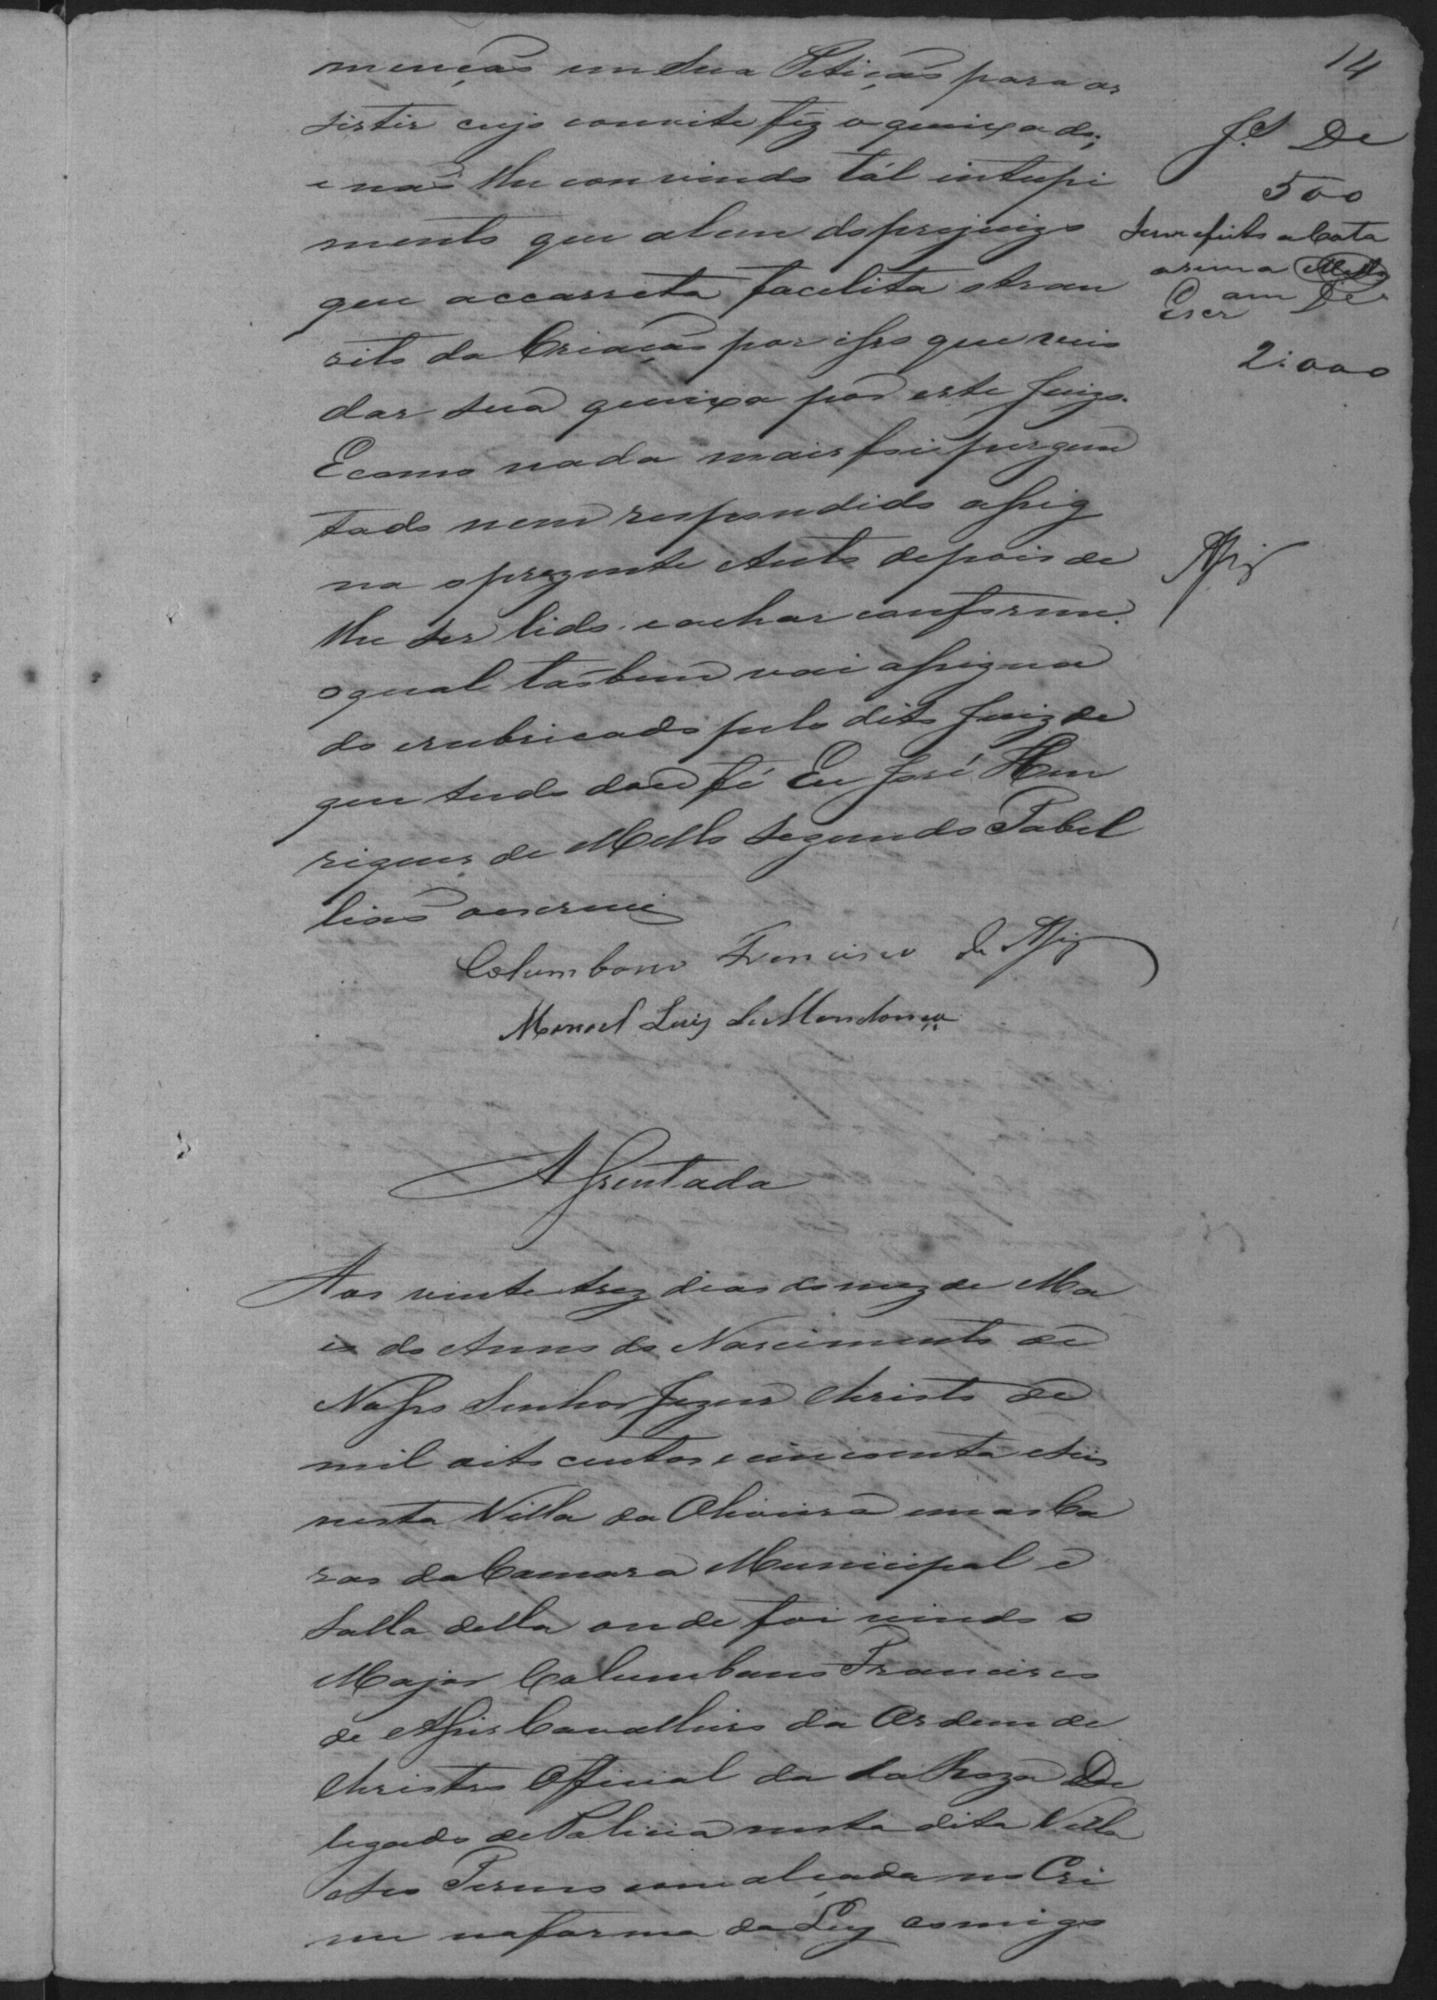 14
menção em sua Petição para as
sistir cujo convite fez o queixado;
e não lhe convindo tál intupi
mento que alem do prejuizo
que accarreta facelita o tran
sito da Criação por isso que veio
dar sua queixa por este Juizo.
E como nada mais foi pergun
tado nem respondido assig
na o prezente Auto depois de
lhe ser lido e achar conforme.
o qual tãobem vai assigna
do e rubricado pelo dito Juiz de
que tudo dou fé Eu José Hen
riques de Mello Segundo Tabel
lião o escrevi
Columbano Francisco de Assiz
Manoel Luiz de Mendonça
J.s De
500
Sem efeito a Cota
asima Mello
Escr am De
2:000
Assiz
Assentada
Aos vinte trez dias do mez de Ma
io do Anno do Nascimento de
Nosso Senhor Jezus Christo de
mil oito centos e cincoenta e seis
nesta Villa da Oliveira em as Ca
zas da Camara Municipal e
Salla della onde foi vindo o
Major Columbano Francisco
de Assis Cavalleiro da Ordem de
Christo Official da da Roza De
legado de Policia nesta dita Villa
e seo Termo com alçada no Cri
me na forma da Ley comigo